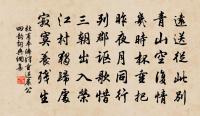 遠送從此別
青山空復情
幾時杯重把
昨夜月同行
列郡謳歌惜
三朝出入榮
江村獨歸處
寂寞養殘生
杜甫奉濟驛重送嚴公
四韻詞典網集